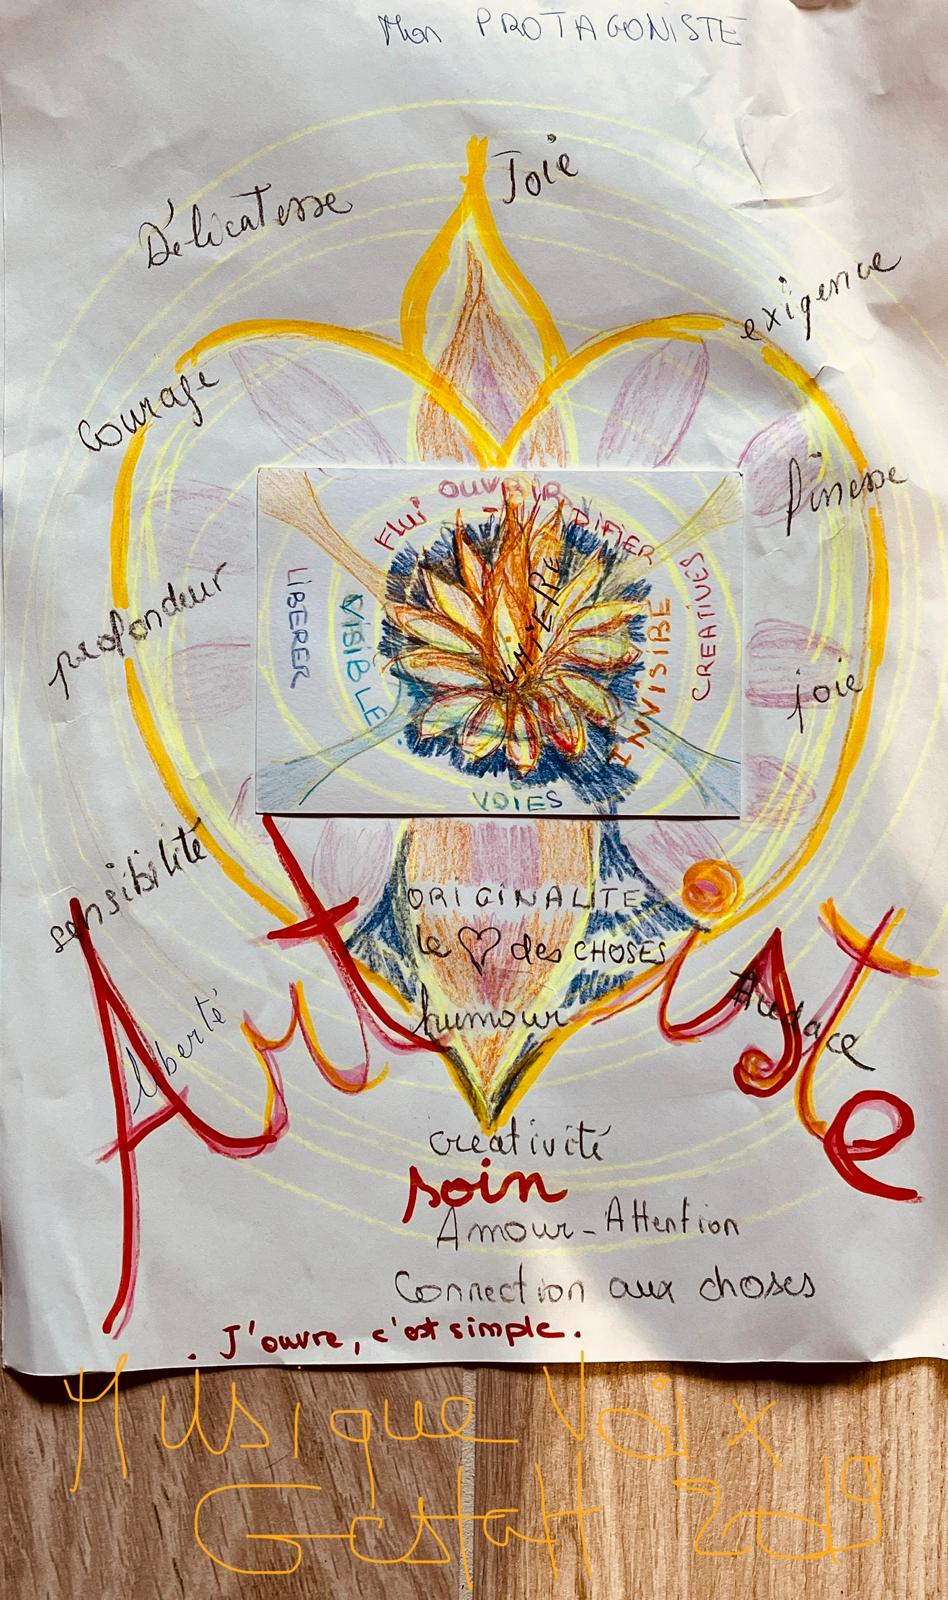 Mon PROTAGONISTE
Joie
Délicatesse
exigence
Courage
finesse
OUVRIR
Flui - DIFIER
profondeur
LIBERER
VISIBLE
LUMIERE
INVISIBE
CREATIVES
joie
VOIES
sensibilité
ORIGINALITE
le ♡ des CHOSES
Artiste
liberté
humour
Audace
creativité
soin
Amour - Attention
Connection aux choses
. J'ouvre, c'est simple.
Musique Voix
Gestalt 2019